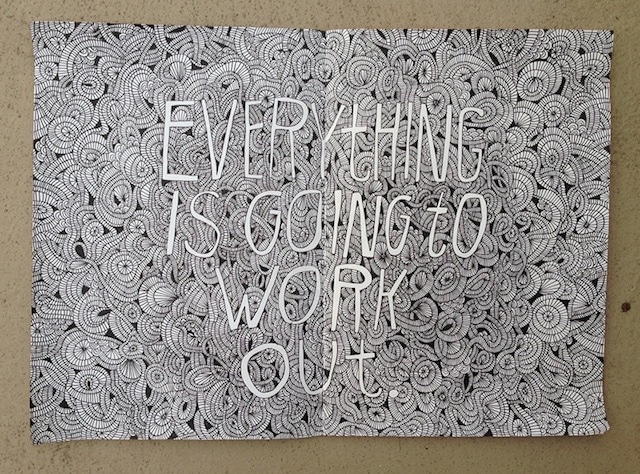 EVERYtHING
IS GOING tO
WORK
OUt.